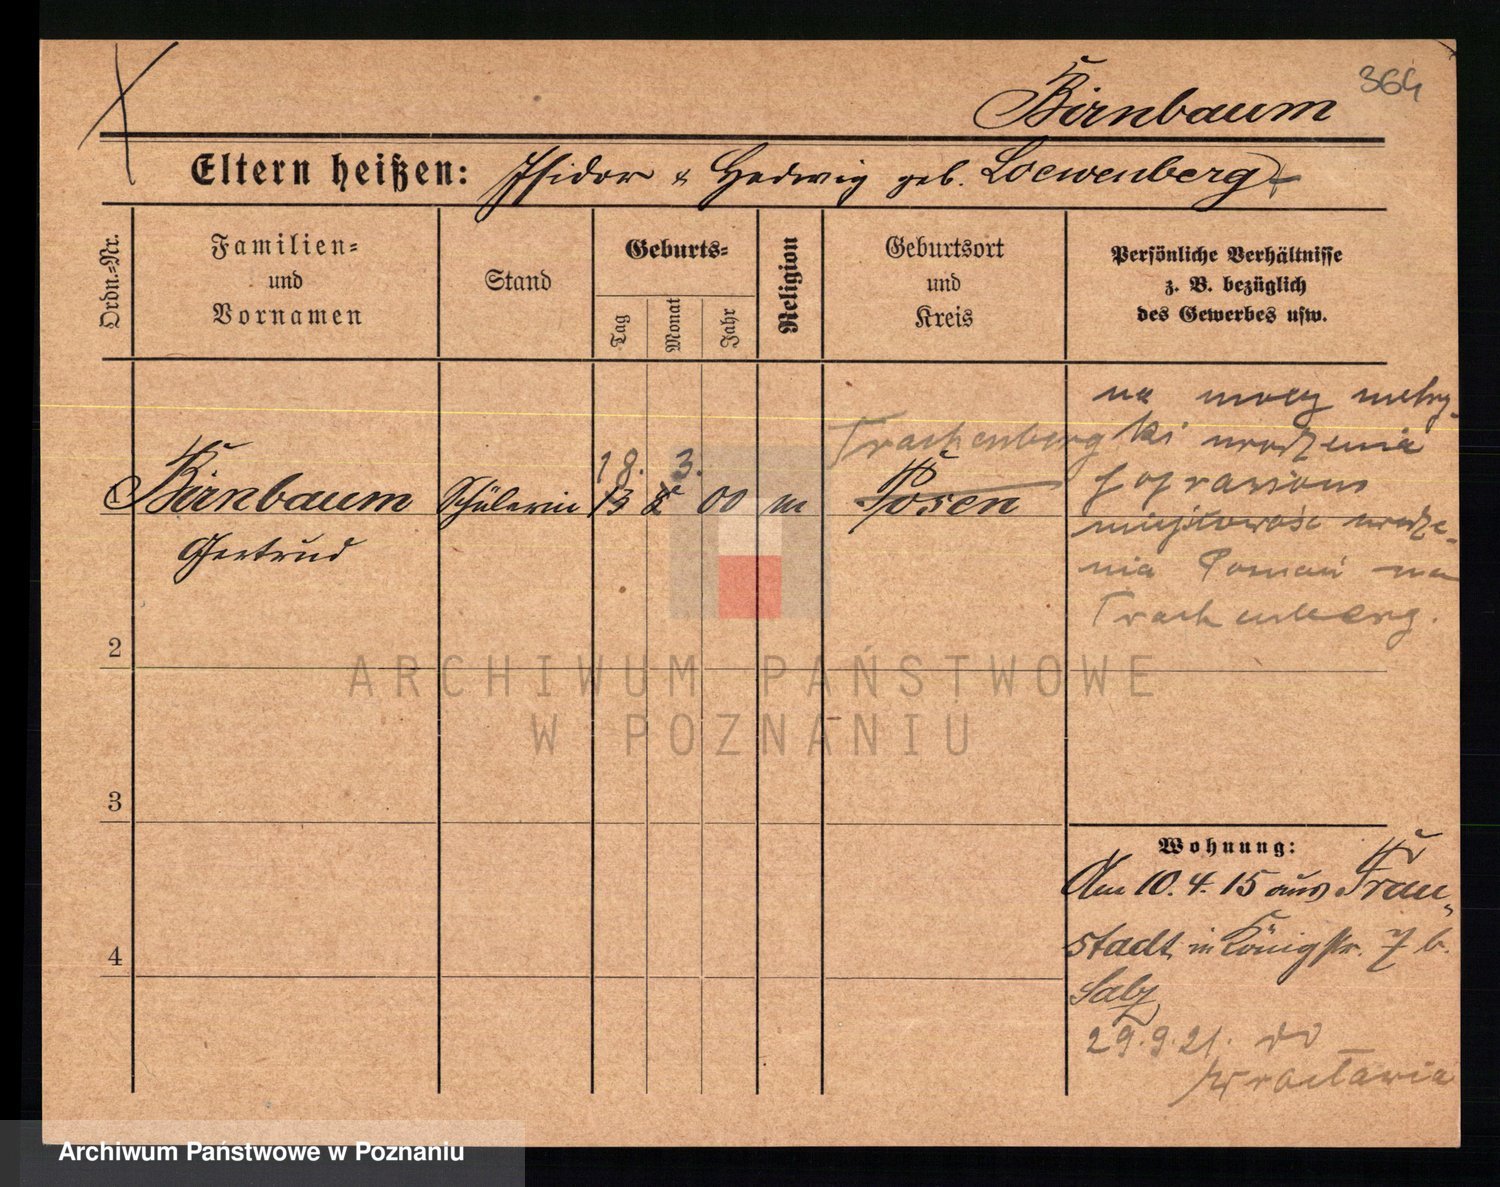 364
Birnbaum
Eltern heißen: Isidor & Hedwig geb. Loewenberg
Ordn.=Nr.
Familien=
und
Vornamen
Stand
Geburts=
Tag
Monat
Jahr
Religion
Geburtsort
und
Kreis
Persönliche Verhältnisse
z. B. bezüglich
des Gewerbes usw.
1 Birnbaum Schülerin 13 00 m Posen
Gertrud
18. 3.
Trachenberg
na mocy metry-
ki urodzenia
poprawiono
miejscowość urodze-
nia Poznań na
Trachenberg.
2
3
4
Wohnung:
Am 10.4.15 aus Frau-
stadt in Königstr. 7 b.
Salz
29.9.21. do
Wrocławia
ARCHIWUM PAŃSTWOWE
W POZNANIU
Archiwum Państwowe w Poznaniu